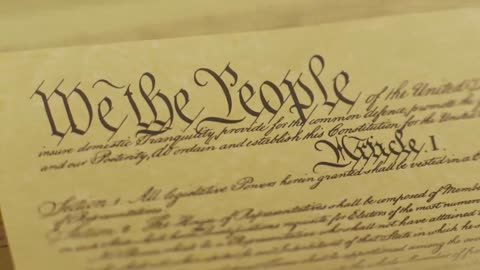 We the People of the United
insure domestic Tranquility, provide for the common defence, promote the
and our Posterity, do ordain and establish this Constitution for the United
Article. I.
Section. 1. All legislative Powers herein granted shall be vested in a
of Representatives.
The House of Representatives shall be composed of Memb
Electors of the most numero
shall not have attained
of that State in which he